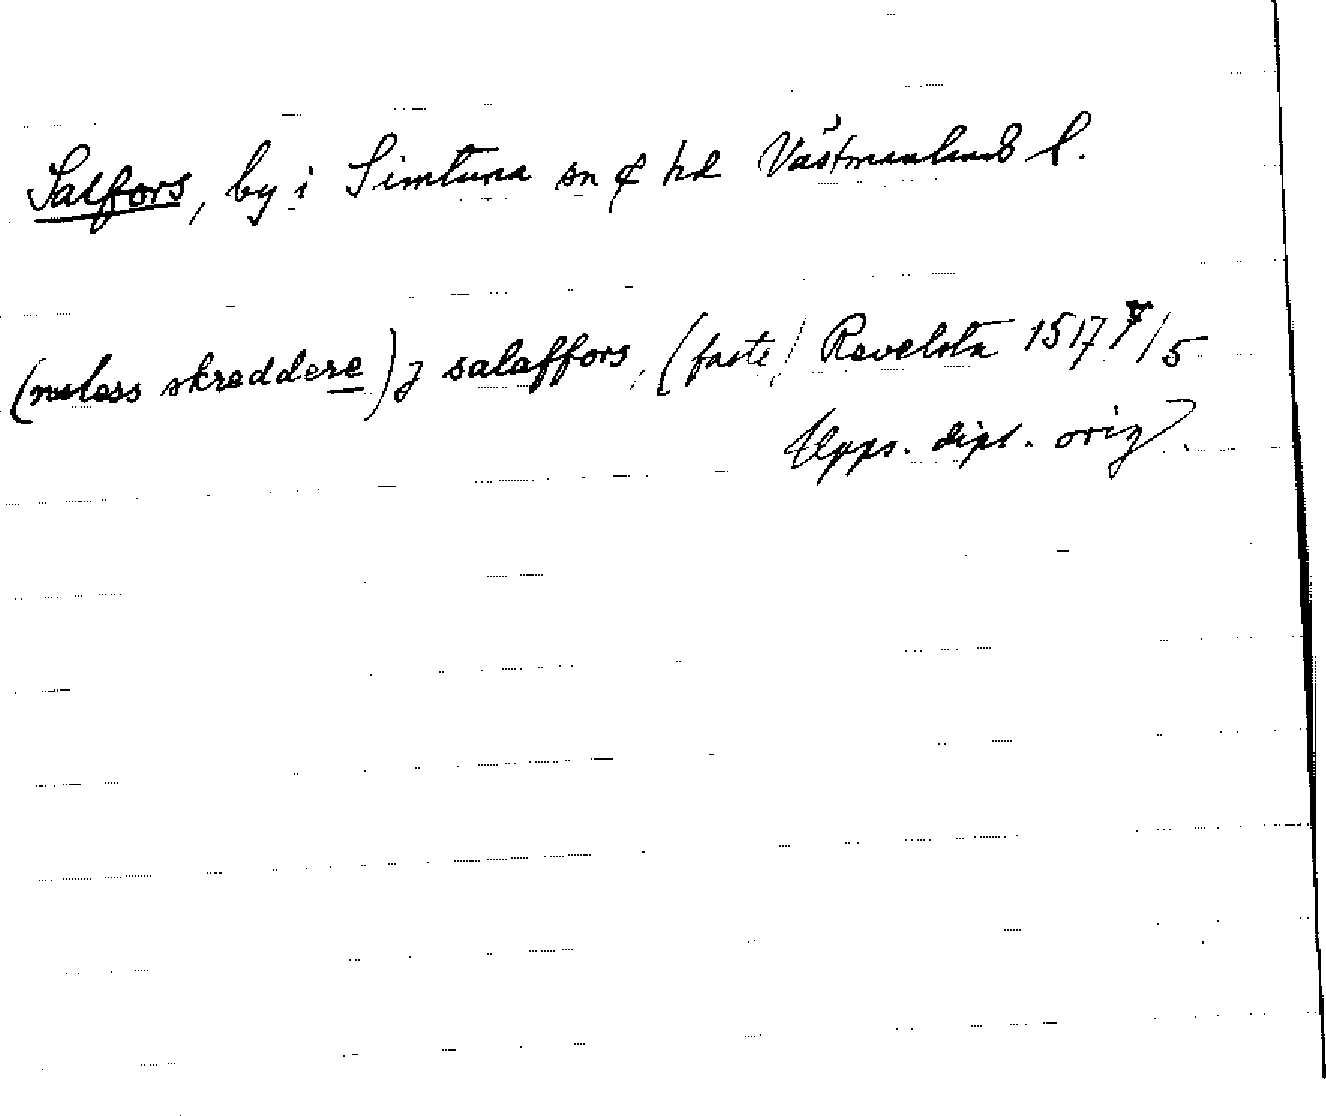 Salfors, by i Simtuna sn & hd Västmanlands l.
(moless skreddere) j salaffors, (faste) Revelsta 1517 7/5
Upps. dipl. orig.